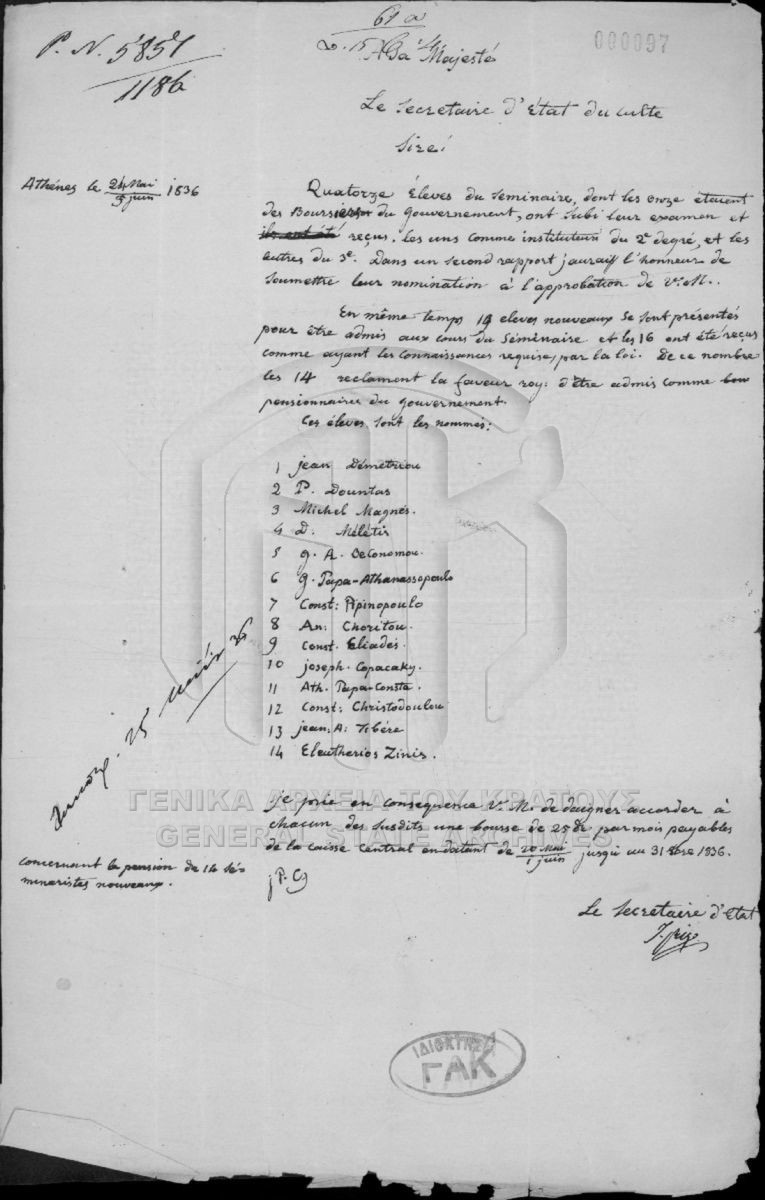 61 a
P. N. 5851
1186
000097
A Sa Majesté
Le Secretaire d'État du culte
Sire!
Athénes le 24 Mai / 5 juin 1836
Quatorze Éleves du Seminaire, dont les onze étaient
des Boursiers du gouvernement, ont subi leur examen et
ils ont été reçus, les uns comme instituteurs du 2e degré, et les
autres du 3e. Dans un second rapport j'aurais l'honneur de
soumettre leur nomination à l'approbation de V. M..
En même temps 19 eleves nouveaux se sont présentés
pour être admis aux cours du Séminaire et les 16 ont été reçus
comme ayant les connaissances requises par la loi. De ce nombre
les 14 reclament la faveur roy: d'être admis comme bou
pensionnaires du gouvernement.
Ces éleves sont les nommés:
1 jean Démétriou
2 P. Dountas
3 Michel Magnés.
4 D. Mélétis
5 g. A. Oeconomou.
6 g. Papa-Athanassopoulo
7 Const: Pipinopoulo
8 An: Choritou.
9 Const. Eliadés.
10 joseph. Copacaky.
11 Ath. Papa-Consta.
12 Const: Christodoulou
13 jean: A: Tibére
14 Eleutherios Zinis.
ΓΕΝΙΚΑ ΑΡΧΕΙΑ ΤΟΥ ΚΡΑΤΟΥΣ
GENERAL STATE ARCHIVES
je prie en consequence V. M. de daigner accorder à
chacun des susdits une bourse de 25 dr par mois payables
de la caisse Central en datant de 20 Mai / 1 juin jusqu'au 31 Xbre 1836.
concernant la pension de 14 sé-
minaristes nouveaux.
Le Secretaire d'Etat
ΙΔΙΟΚΤΗΣΙΑ
ΓΑΚ